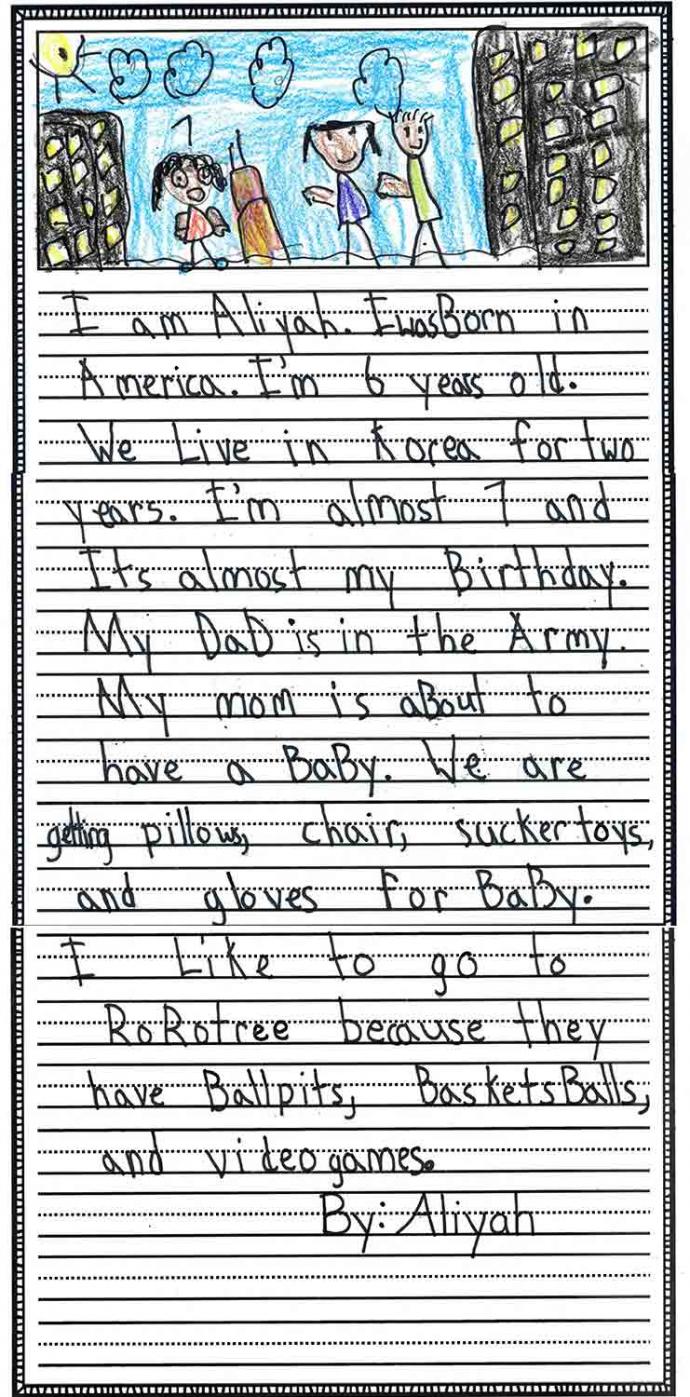 1
I am Aliyah. I was Born in
America. I'm 6 years old.
We Live in Korea for two
years. I'm almost 7 and
It's almost my Birthday.
My DaD is in the Army.
My mom is aBout to
have a BaBy. We are
getting pillows, chair, sucker toys,
and gloves for BaBy.
I Like to go to
RoRotree because they
have Ballpits, BasketsBalls,
and video games.
By: Aliyah